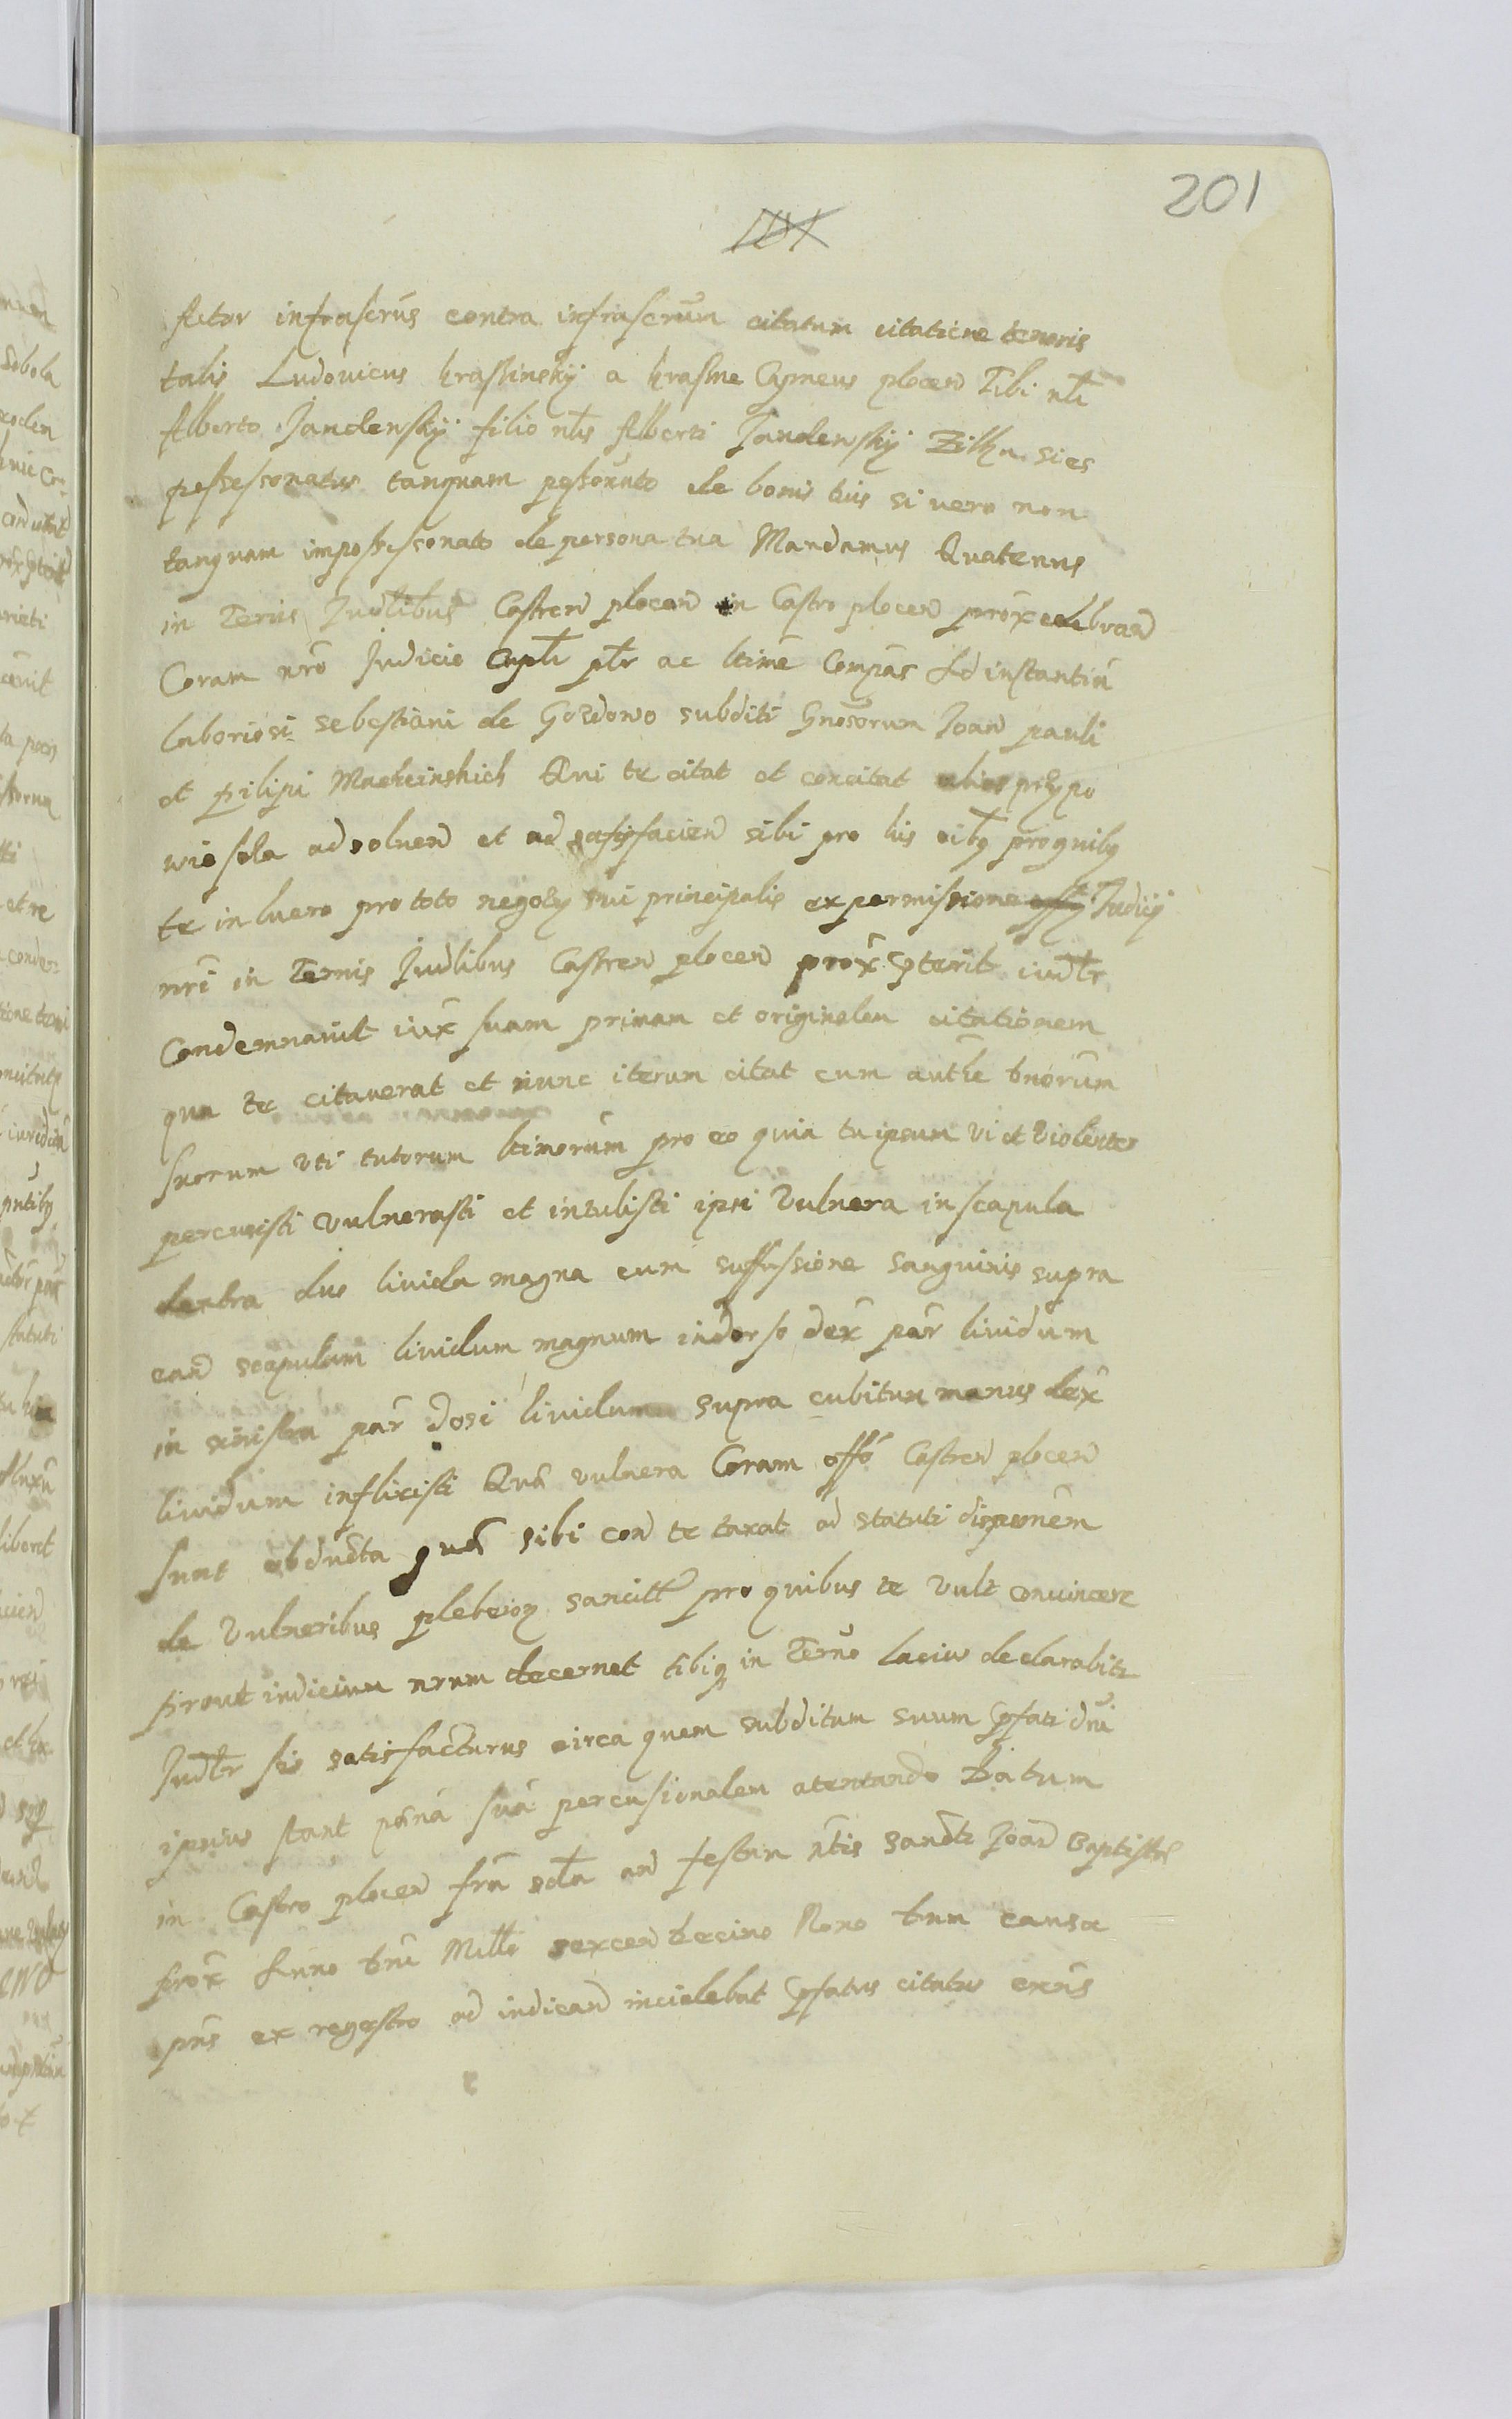 201
Actor infrascrús contra infrascrum citatum citatione tenoris
talis Ludovicus krassinskÿ a krasne Capneus plocen Tibi nli
Alberto Janclenskÿ filio nlis Alberti Janclenskÿ Zilkn si es
possessonatus tanquam possonnto de bonis tuis si vero non
tanquam impossessonato de persona tua Mandamus Quatenus
in Termis Judlibus Castren plocen in Castro plocen prox celebran
Coram nro Judicio Capli plr ac ltime Compas Ad instantia
laboriosi sebestiani de Gozdowo subditi Gnosorum Joan pauli
et pilipi Machcinskich Qui te citat et concitat alias przypo
wiesda ad solnen et ad satisfacien sibi pro his oibq pro quibq
te in lucro pro toto negoty sui principalis ex permissione Judicÿ
nri in Termis Judlibus Castren plocen prox pterit iudlr
Condemnavit iux suam primam et originalem citationem
qua te citaverat et nunc iterum citat cum authe dnorum
suorum Vti tutorum ltimorum pro eo quia tu ipsum Vi et Violenter
percusisti Vulnerasti et intulisti ipsi Vulnera in scapula
dextra duo livida magna cum suffussione sanguinis supra
ean scapulam lividum magnum in dorso dex par lividum
in sinistra par dosi lividum supra cubitum manus dex
lividum inflixisti Qua vulnera Coram offo Castren plocen
sunt obducta qua sibi con te taxat ad statuti disponem
de Vulneribus plebeior sancitt pro quibus te Vult convincere
prout iudicium nrum decernet tibiq in Terno lacius declarabitr
Judlr sis satisfacturus circa quem subditum suum pfati dni
ipsius stant pana sua percusionalem atentando Datum
in Castro plocen fria scda ad festum ntis sancti Joan Baptistæ
prox Anno dni Mille sexcen decimo Nono dum causa
pns ex regestro ad iudican incidebat pfatus citatus exns